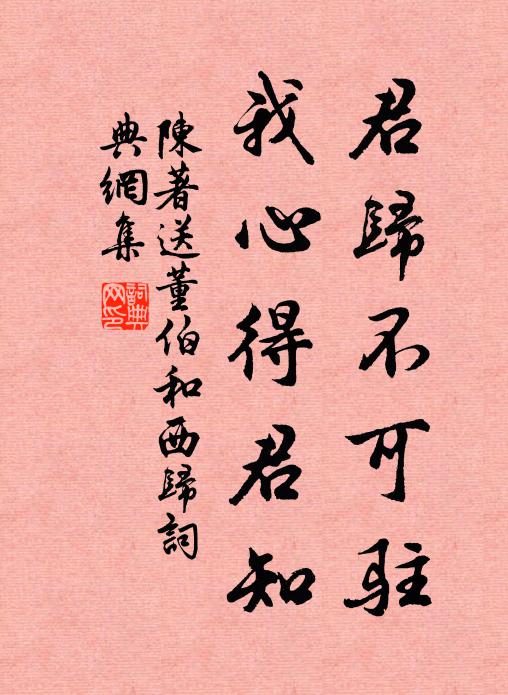 君歸不可駐
我心得君知
陳著送董伯和西歸詞
典網集
詞典网印